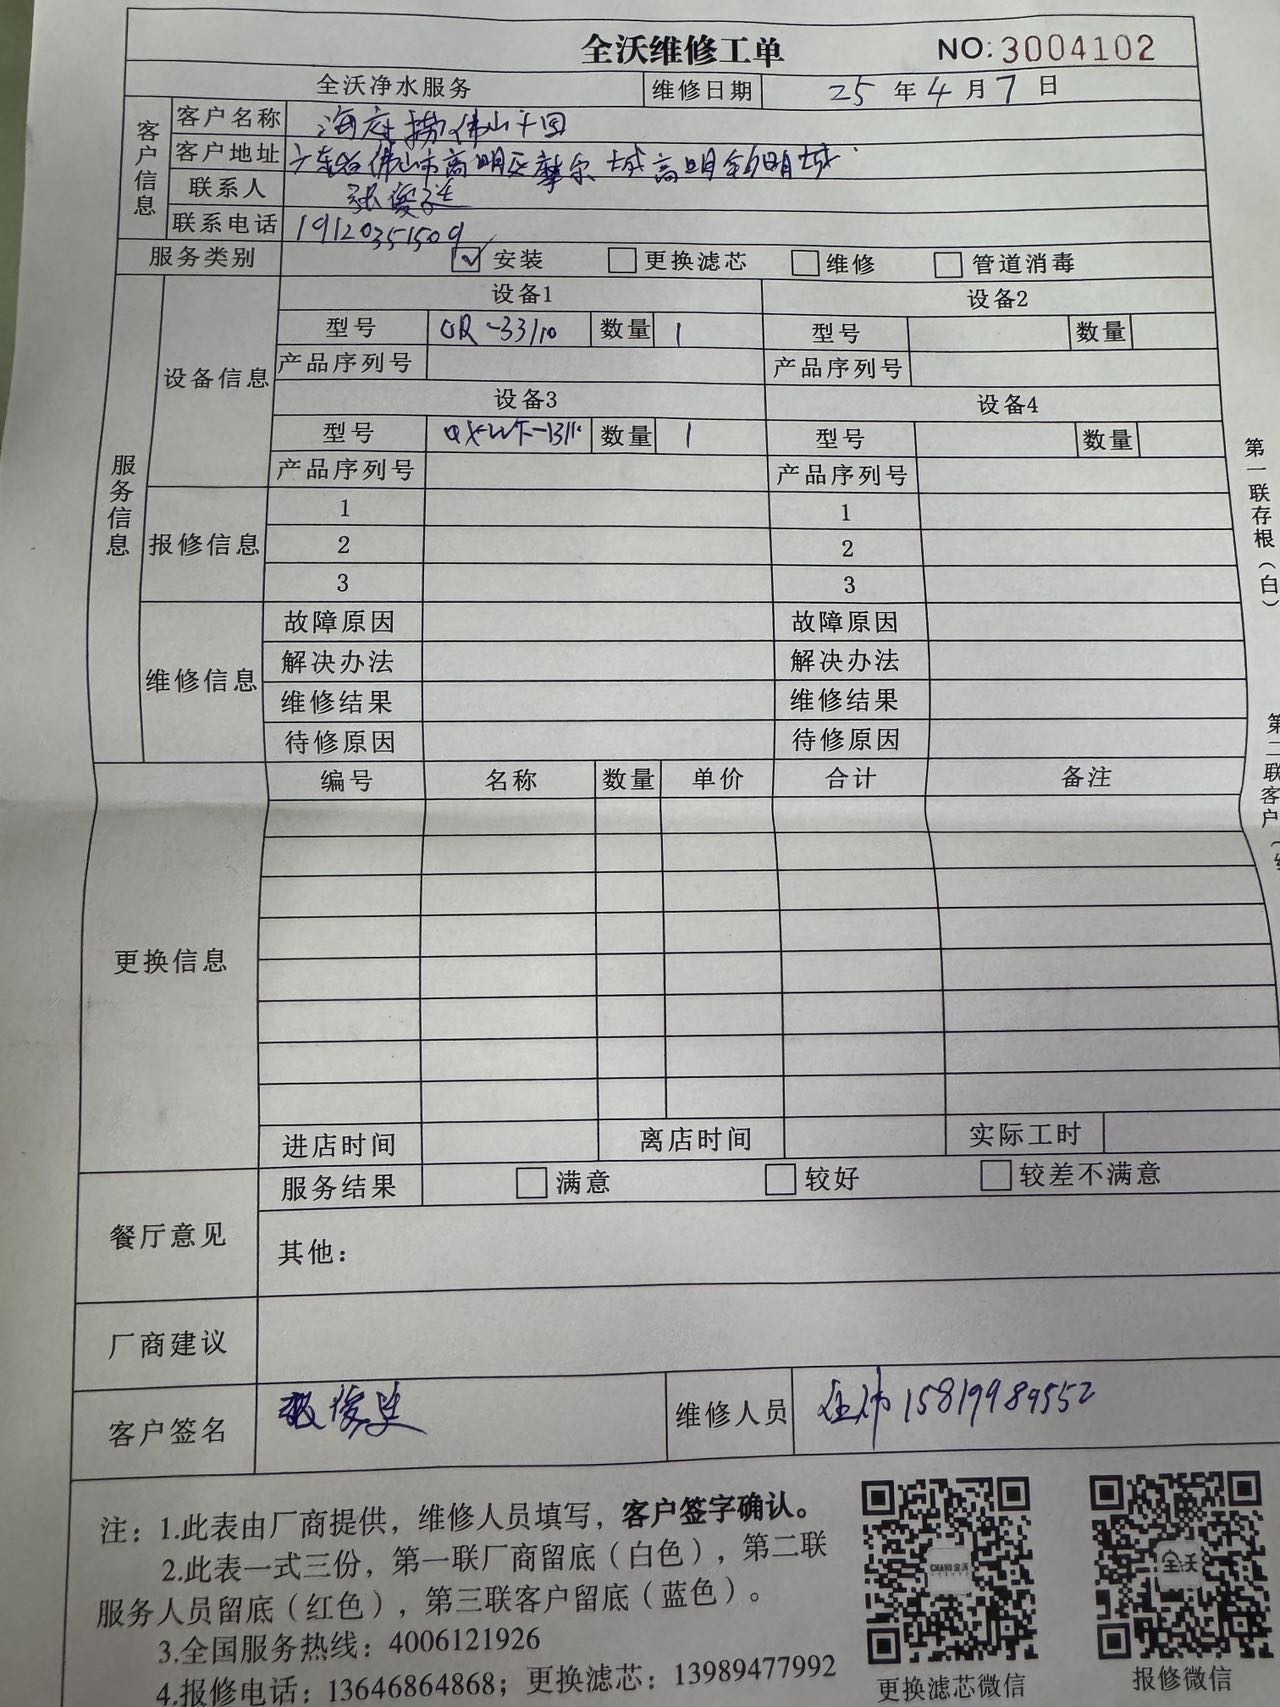 全沃维修工单 NO:3004102
全沃净水服务 维修日期 25年4月7日
客户信息
客户名称
客户地址 广东省佛山市高明区摩尔城高明 明城
联系人 张俊
联系电话 19120351509
服务类别 ☑安装 □更换滤芯 □维修 □管道消毒
服务信息
设备信息
设备1 设备2
型号 -33/10 数量 1 型号 数量
产品序列号 产品序列号
设备3 设备4
型号 数量 1 型号 数量
产品序列号 产品序列号
报修信息
1 1
2 2
3 3
维修信息
故障原因 故障原因
解决办法 解决办法
维修结果 维修结果
待修原因 待修原因
更换信息
编号 名称 数量 单价 合计 备注
进店时间 离店时间 实际工时
餐厅意见
服务结果 □满意 □较好 □较差不满意
其他：
厂商建议
客户签名 维修人员 15819989552
注：1.此表由厂商提供，维修人员填写，客户签字确认。
2.此表一式三份，第一联厂商留底（白色），第二联
服务人员留底（红色），第三联客户留底（蓝色）。
3.全国服务热线：4006121926
4.报修电话：13646864868；更换滤芯：13989477992
更换滤芯微信 报修微信
全沃
第一联存根（白）
第二联客户（